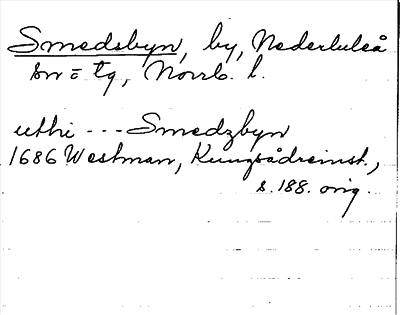 Smedsbyn, by, Nederluleå
sn = tg, Norrb. l.
uthi --- Smedzbyn
1686 Westman, Kungsådreinst.,
s. 188. orig.